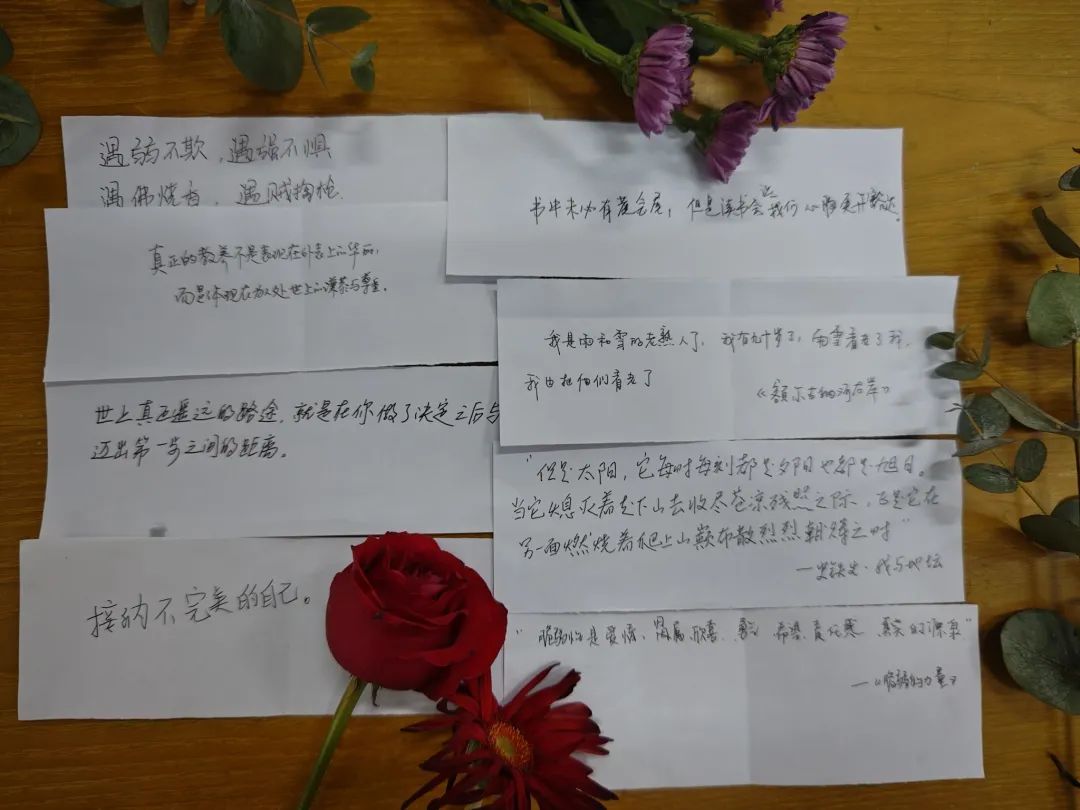 遇弱不欺，遇强不惧
遇佛烧香，遇贼掏枪.
真正的教养不是表现在外表上的华丽，
而是体现在为人处世上的谦恭与尊重。
世上真正遥远的路途，就是在你做了决定之后与
迈出第一步之间的距离。
接纳不完美的自己。
书中未必有黄金屋，但是读书会让我们心胸更开阔。
我是雨和雪的老熟人了，我有九十岁了，雨雪看老了我，
我也把他们看老了
《额尔古纳河右岸》
"但是太阳，它每时每刻都是夕阳也都是旭日。
当它熄灭着走下山去收尽苍凉残照之际，正是它在
另一面燃烧着爬上山巅布散烈烈朝辉之时"
—史铁生·我与地坛
"脆弱性是爱情、归属、欣喜、勇气、希望、责任感、真实的源泉"
—《脆弱的力量》